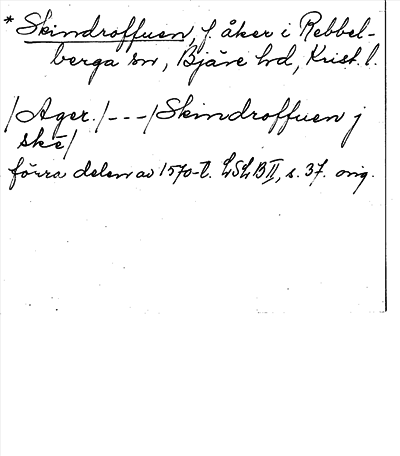 * Skindroffuen, f. åker i Rebbel-
berga sn, Bjäre hd, Krist. l.
/Ager./ - - - /Skindroffuen j
skē/
förra delen av 1570-t. LSLB II, s. 37. orig.